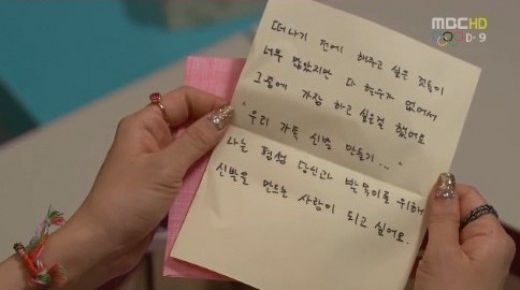 MBC HD
D-9
떠나기 전에 해주고 싶은 것들이
너무 많았지만 다 할수가 없어서
그중에 가장 하고 싶은걸 했어요
"우리 가족 신발 만들기..."
나는 평생 당신과 발목이를 위해
신발을 만드는 사람이 되고 싶어요.